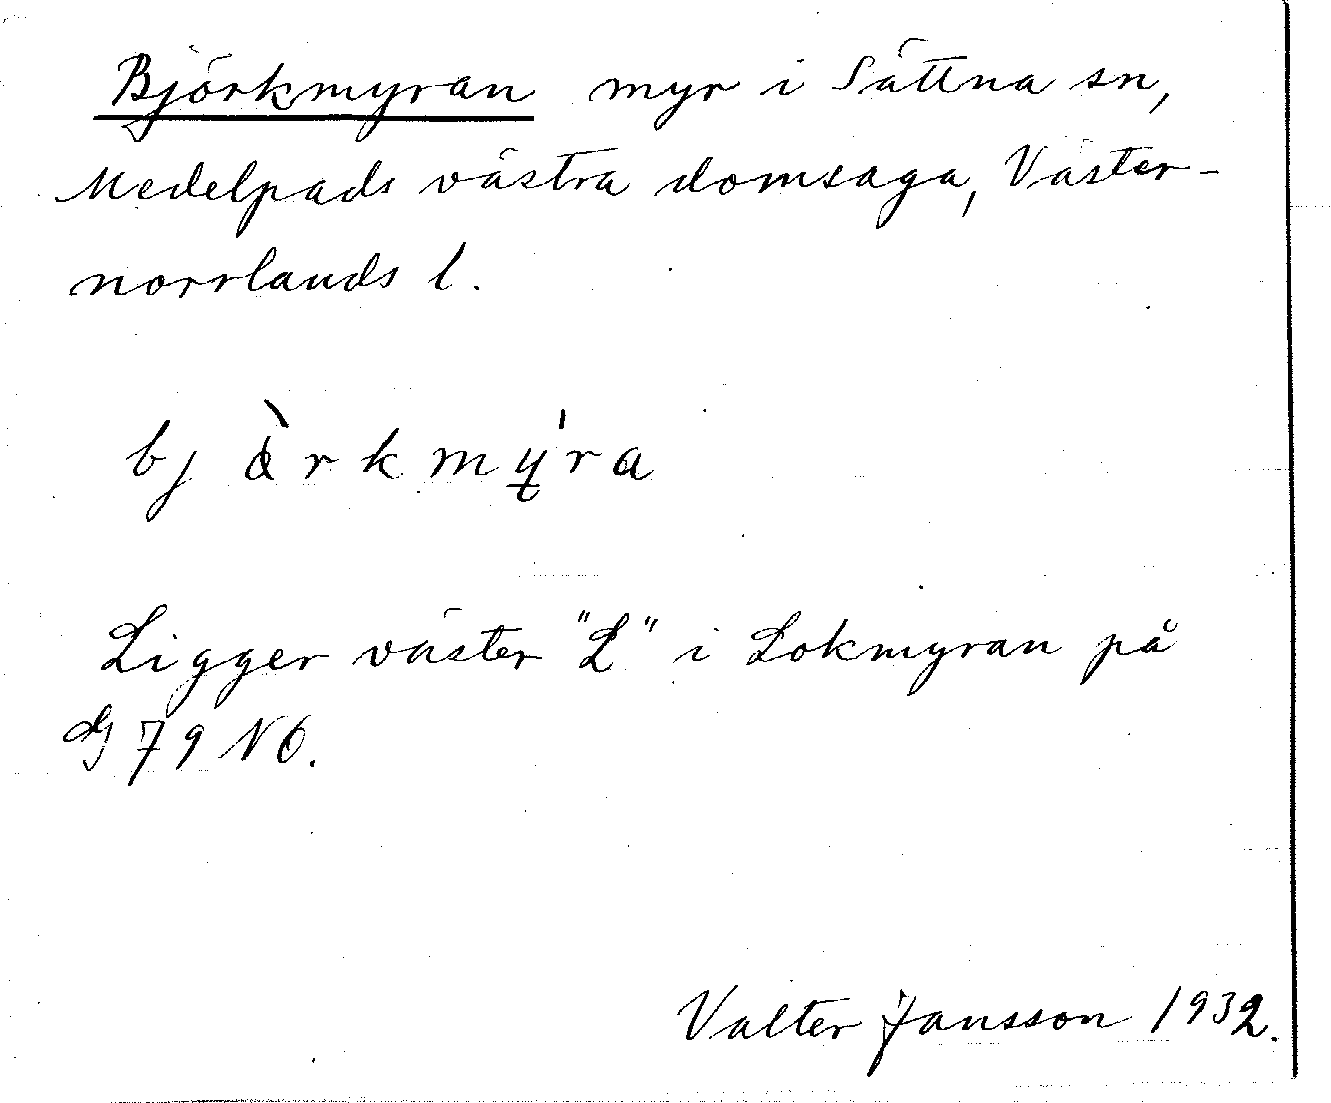 Björkmyran myr i Sättna sn,
Medelpads västra domsaga, Väster-
norrlands l.
bjàrkmy̱'ra
Ligger väster "L" i Lokmyran på
G 79 NÖ.
Valter Jansson 1932.